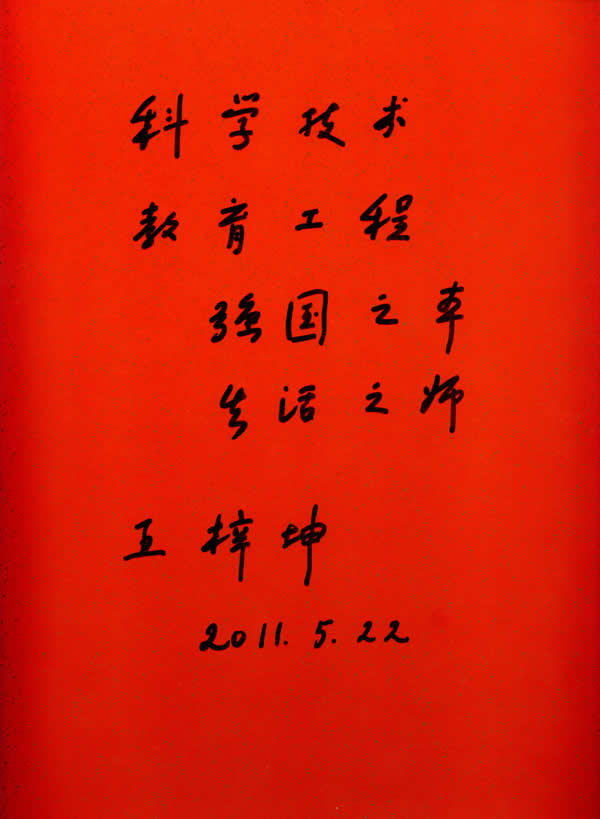 科学技术
教育工程
强国之本
生活之师
王梓坤
2011.5.22